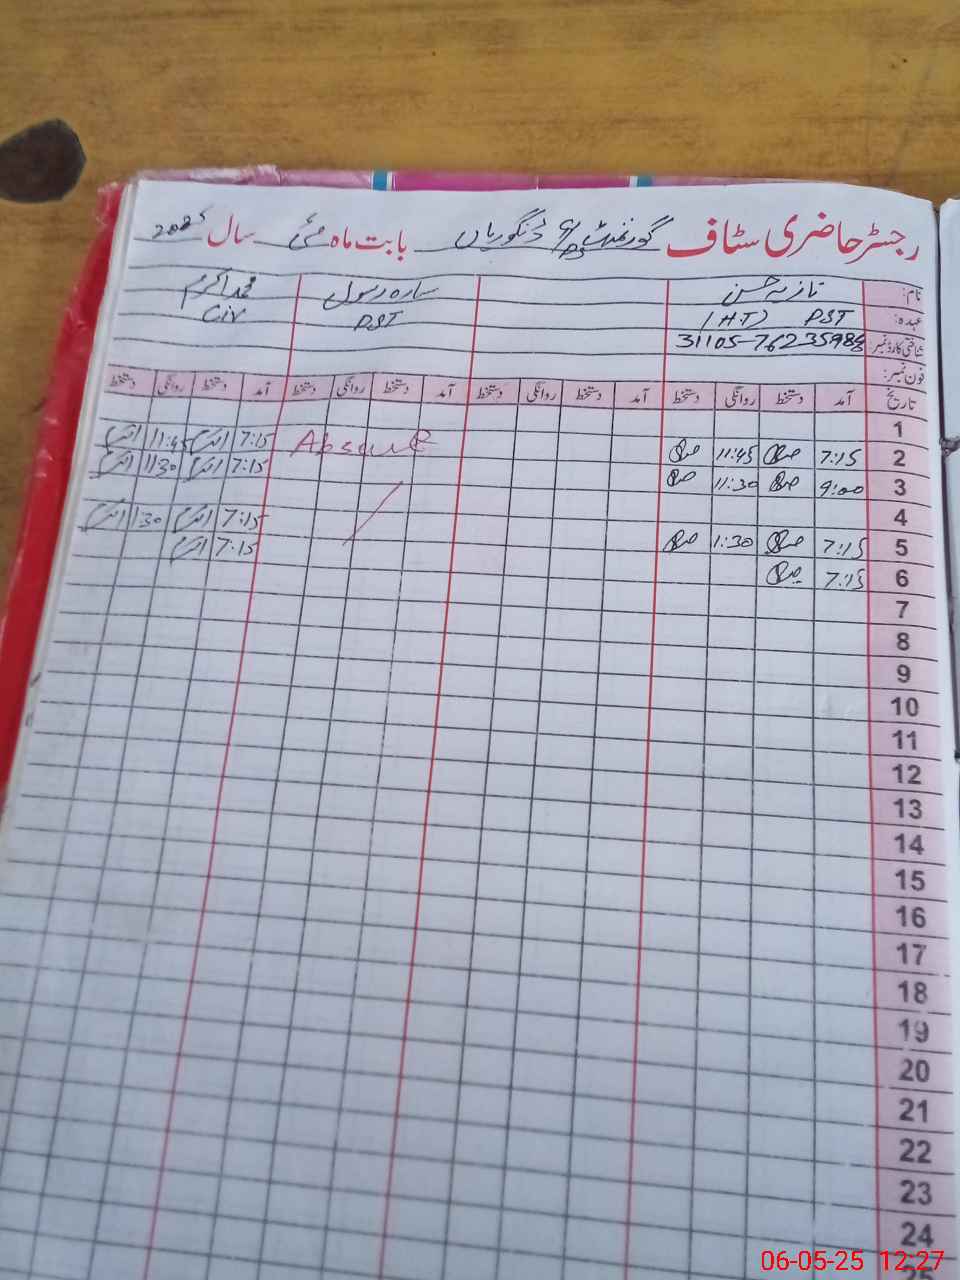 رجسٹر حاضری سٹاف گورنمنٹ G/PS ڈنگوریاں بابت ماہ مئی سال 2025
نام: نازیہ حسن سارہ رسول محمد اکرم
عہدہ: PST (H.T) PST Civ
شناختی کارڈ نمبر: 31105-76235988
فون نمبر:
تاریخ آمد دستخط روانگی دستخط آمد دستخط روانگی دستخط آمد دستخط روانگی دستخط آمد دستخط روانگی دستخط
1
2 7:15 11:45 Absent 7:15 11:45
3 9:00 11:30 7:15 11:30
4
5 7:15 1:30 7:15 1:30
6 7:15 7:15
7
8
9
10
11
12
13
14
15
16
17
18
19
20
21
22
23
24
06-05-25 12:27